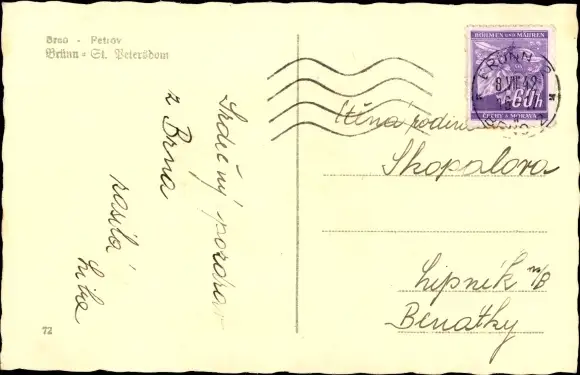 Brno - Petrov
Brünn - St. Petersdom
Srdečný pozdrav
z Brna
zasílá
72
BÖHMEN UND MÄHREN
60h
ČECHY A MORAVA
BRÜNN
8 VII 42
Ctěná rodina
Skopalova
Lipník n/B
Benatky